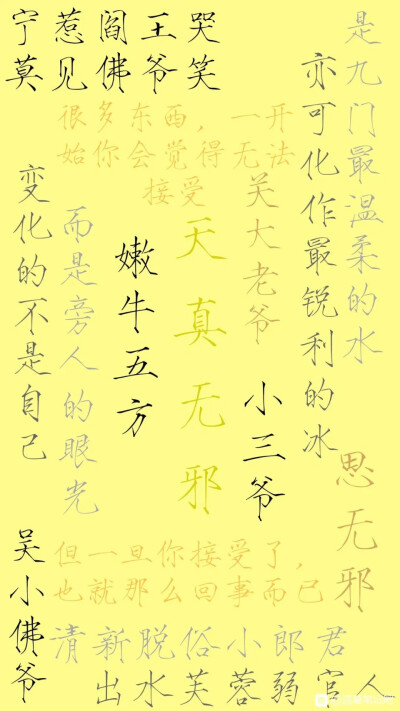 宁惹阎王哭
莫见佛爷笑
是九门最温柔的水
亦可化作最锐利的冰
很多东西，一开
始你会觉得无法
接受
变化的不是自己
而是旁人的眼光
嫩牛五方
天真无邪
关大老爷
小三爷
思无邪
吴小佛爷
但一旦你接受了，
也就那么回事而已
清新脱俗小郎君
出水芙蓉弱官人